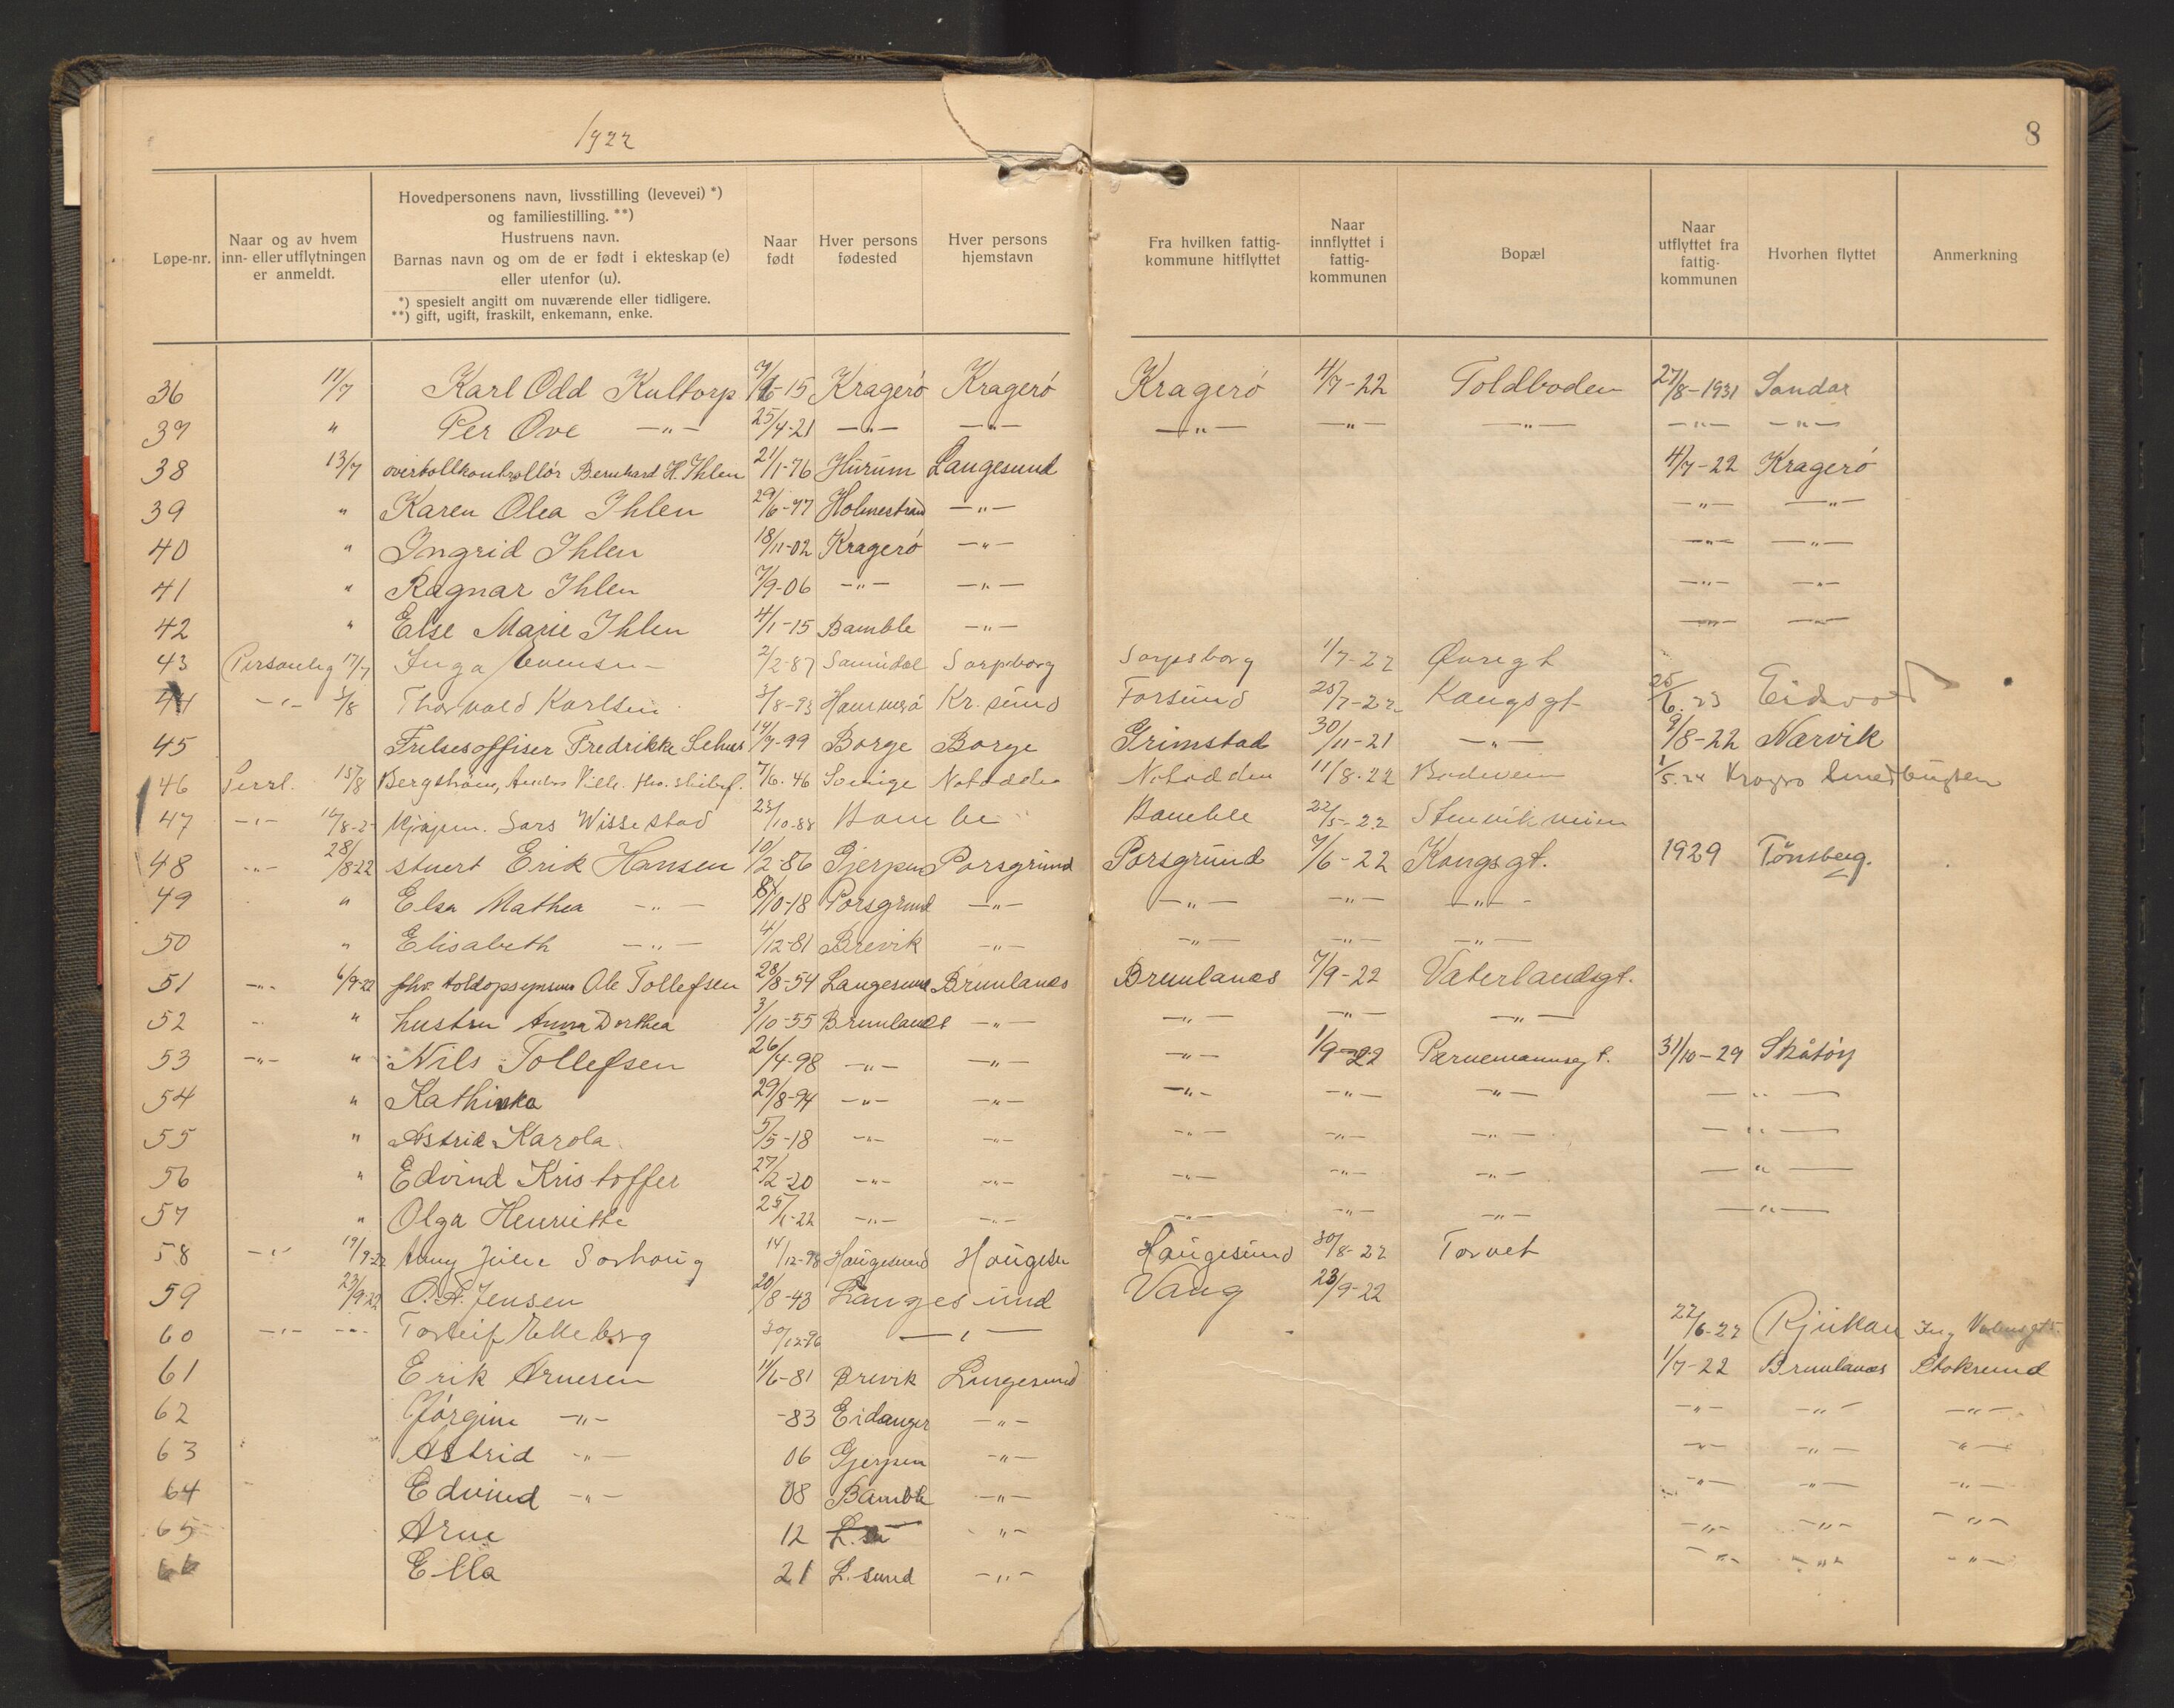 1922
8
Løpe-nr.
Naar og av hvem inn- eller utflytningen er anmeldt.
Hovedpersonens navn, livsstilling (levevei) *) og familiestilling. **)
Hustruens navn.
Barnas navn og om de er født i ekteskap (e) eller utenfor (u).
*) spesielt angitt om nuværende eller tidligere.
**) gift, ugift, fraskilt, enkemann, enke.
Naar født
Hver persons fødested
Hver persons hjemstavn
Fra hvilken fattig-kommune hitflyttet
Naar innflyttet i fattig-kommunen
Bopæl
Naar utflyttet fra fattig-kommunen
Hvorhen flyttet
Anmerkning
36 11/7 Karl Odd Kultorp -15 Kragerö Kragerö Kragerö 4/7-22 Toldboden 27/8-1931 Sandar
37 " Per Ove -"- 25/4-21 -"- -"- -"- -"- -"- -"- -"-
38 13/7 overtollkontrollör Bernhard H. Ihlen 21/1-76 Hurum Langesund 4/7-22 Kragerö
39 " Karen Olea Ihlen 29/6-77 Holmestrand -"- -"- -"-
40 " Ingrid Ihlen 18/11-02 Kragerö -"- -"- -"-
41 " Ragnar Ihlen 7/9-06 -"- -"- -"- -"-
42 " Else Marie Ihlen 4/1-15 Bamble -"- -"- -"-
43 Personlig 17/7 Inga Evensen 2/2-87 Sarpsborg Sarpsborg 1/7-22 Øvregt
44 -"- 5/8 Thorvald Karlsen 3/8-93 Kr.sund 25/7-22 Kongsgt 25/6.23
45 Frelsesoffiser Fredrikke 14/7-99 Borge Borge Grimstad 30/11-21 -"- 9/8-22 Narvik
46 Persl. 15/8 Bergström, 7/6.46 Notodden Notodden 11/8.22 1/5.24
47 -"- Lars Wissestad 23/10-88 Bamble Bamble 22/5-22
48 -"- 28/8-22 stuert Erik Hansen 10/2-86 Gjerpen Porsgrund Porsgrund 7/6-22 Kongsgt. 1929 Tönsberg.
49 " Elsa Mathea -"- 8/10-18 Porsgrund -"- -"- -"- -"-
50 " Elisabeth -"- 4/12-81 Brevik -"- -"- -"- -"-
51 -"- 6/9-22 Ole Tollefsen 28/8-54 Langesund Brunlanes Brunlanes 7/9-22 Vaterlandsgt.
52 " hustru Anna Dorthea 3/10-55 Brunlanes -"- -"- -"- -"-
53 -"- " Nils Tollefsen 26/4-98 -"- -"- -"- 1/9-22 31/10-29 Skåtöy
54 " Kathinka 29/8-94 -"- -"- -"- -"- -"- -"-
55 " Astrid Karola 5/5-18 -"- -"- -"- -"- -"- -"-
56 " Edvind Kristoffer 27/2-20 -"- -"- -"- -"- -"- -"-
57 " Olga Henriette 25/1-22 -"- -"- -"- -"- -"- -"-
58 -"- 19/9-22 14/12-98 Haugesund Haugesu Haugesund 30/8-22 Torvet
59 23/9-22 O. A. Jensen 20/8-43 Langesund Vang 23/9-22
60 -"- -"- Torleif Ekeberg 30/12-96 -"- 22/6-22 Rjukan
61 Erik Arnesen 11/6-81 Brevik Langesund 1/7-22 Brunlanes Stoksund
62 Jörgine -"- -83 Eidanger -"- -"- -"- -"-
63 Astrid -"- 06 Gjerpen -"- -"- -"- -"-
64 Edvind -"- 08 Bamble -"- -"- -"- -"-
65 Arne 12 -"- -"- -"- -"-
66 Ella 21 L.sund -"- -"- -"- -"-